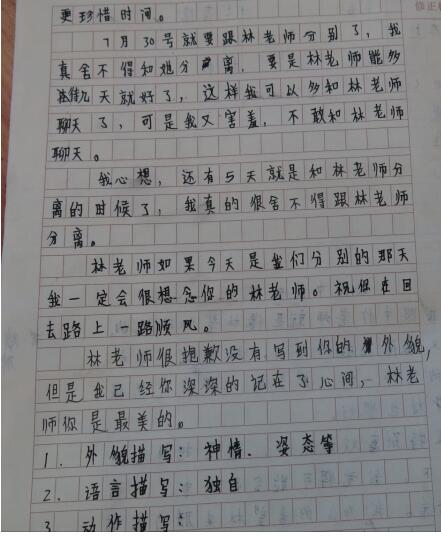 更珍惜时间。
7月30号就要跟林老师分别了，我
真舍不得和她分离，要是林老师能多
几天就好了，这样我可以多和林老师
聊天了，可是我又害羞，不敢和林老师
聊天。
我心想，还有5天就是和林老师分
离的时候了，我真的很舍不得跟林老师
分离。
林老师如果今天是我们分别的那天
我一定会很想念你的林老师。祝你在回
去路上一路顺风。
林老师很抱歉没有写到你的外貌，
但是我已经你深深的记在了心间，林老
师你是最美的。
1.外貌描写：神情．姿态等
2.语言描写：独自
3.动作描写：